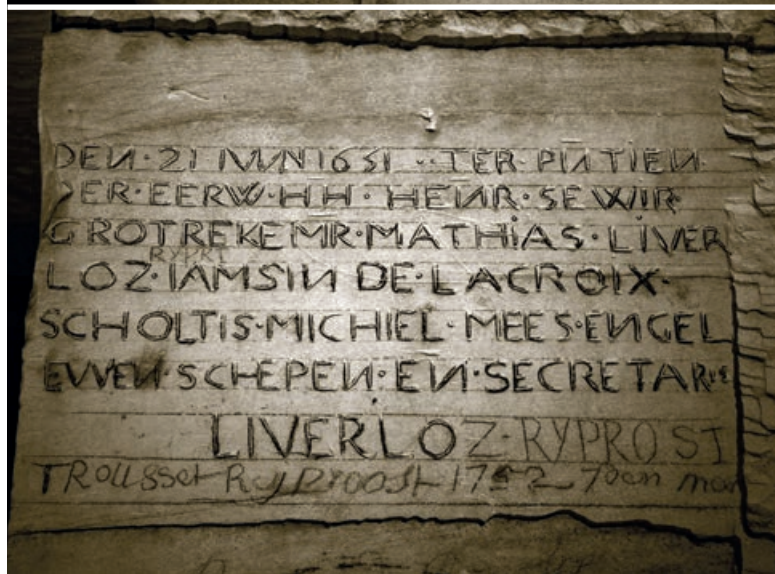 DEN · 21 IVVN 1651 · TER · PINTIEN
DER · EERW · H H · HENR · SEWIR
GROTREKEMR · MATHIAS · LIVER
RYPRT
LOZ · IAMSIN DE · LACROIX ·
SCHOLTIS · MICHIEL · MEES · ENGEL
EVVEN · SCHEPEN · EN · SECRETAR
LIVERLOZ · RYPROST
TRousset Ryproost 17 2 Toen